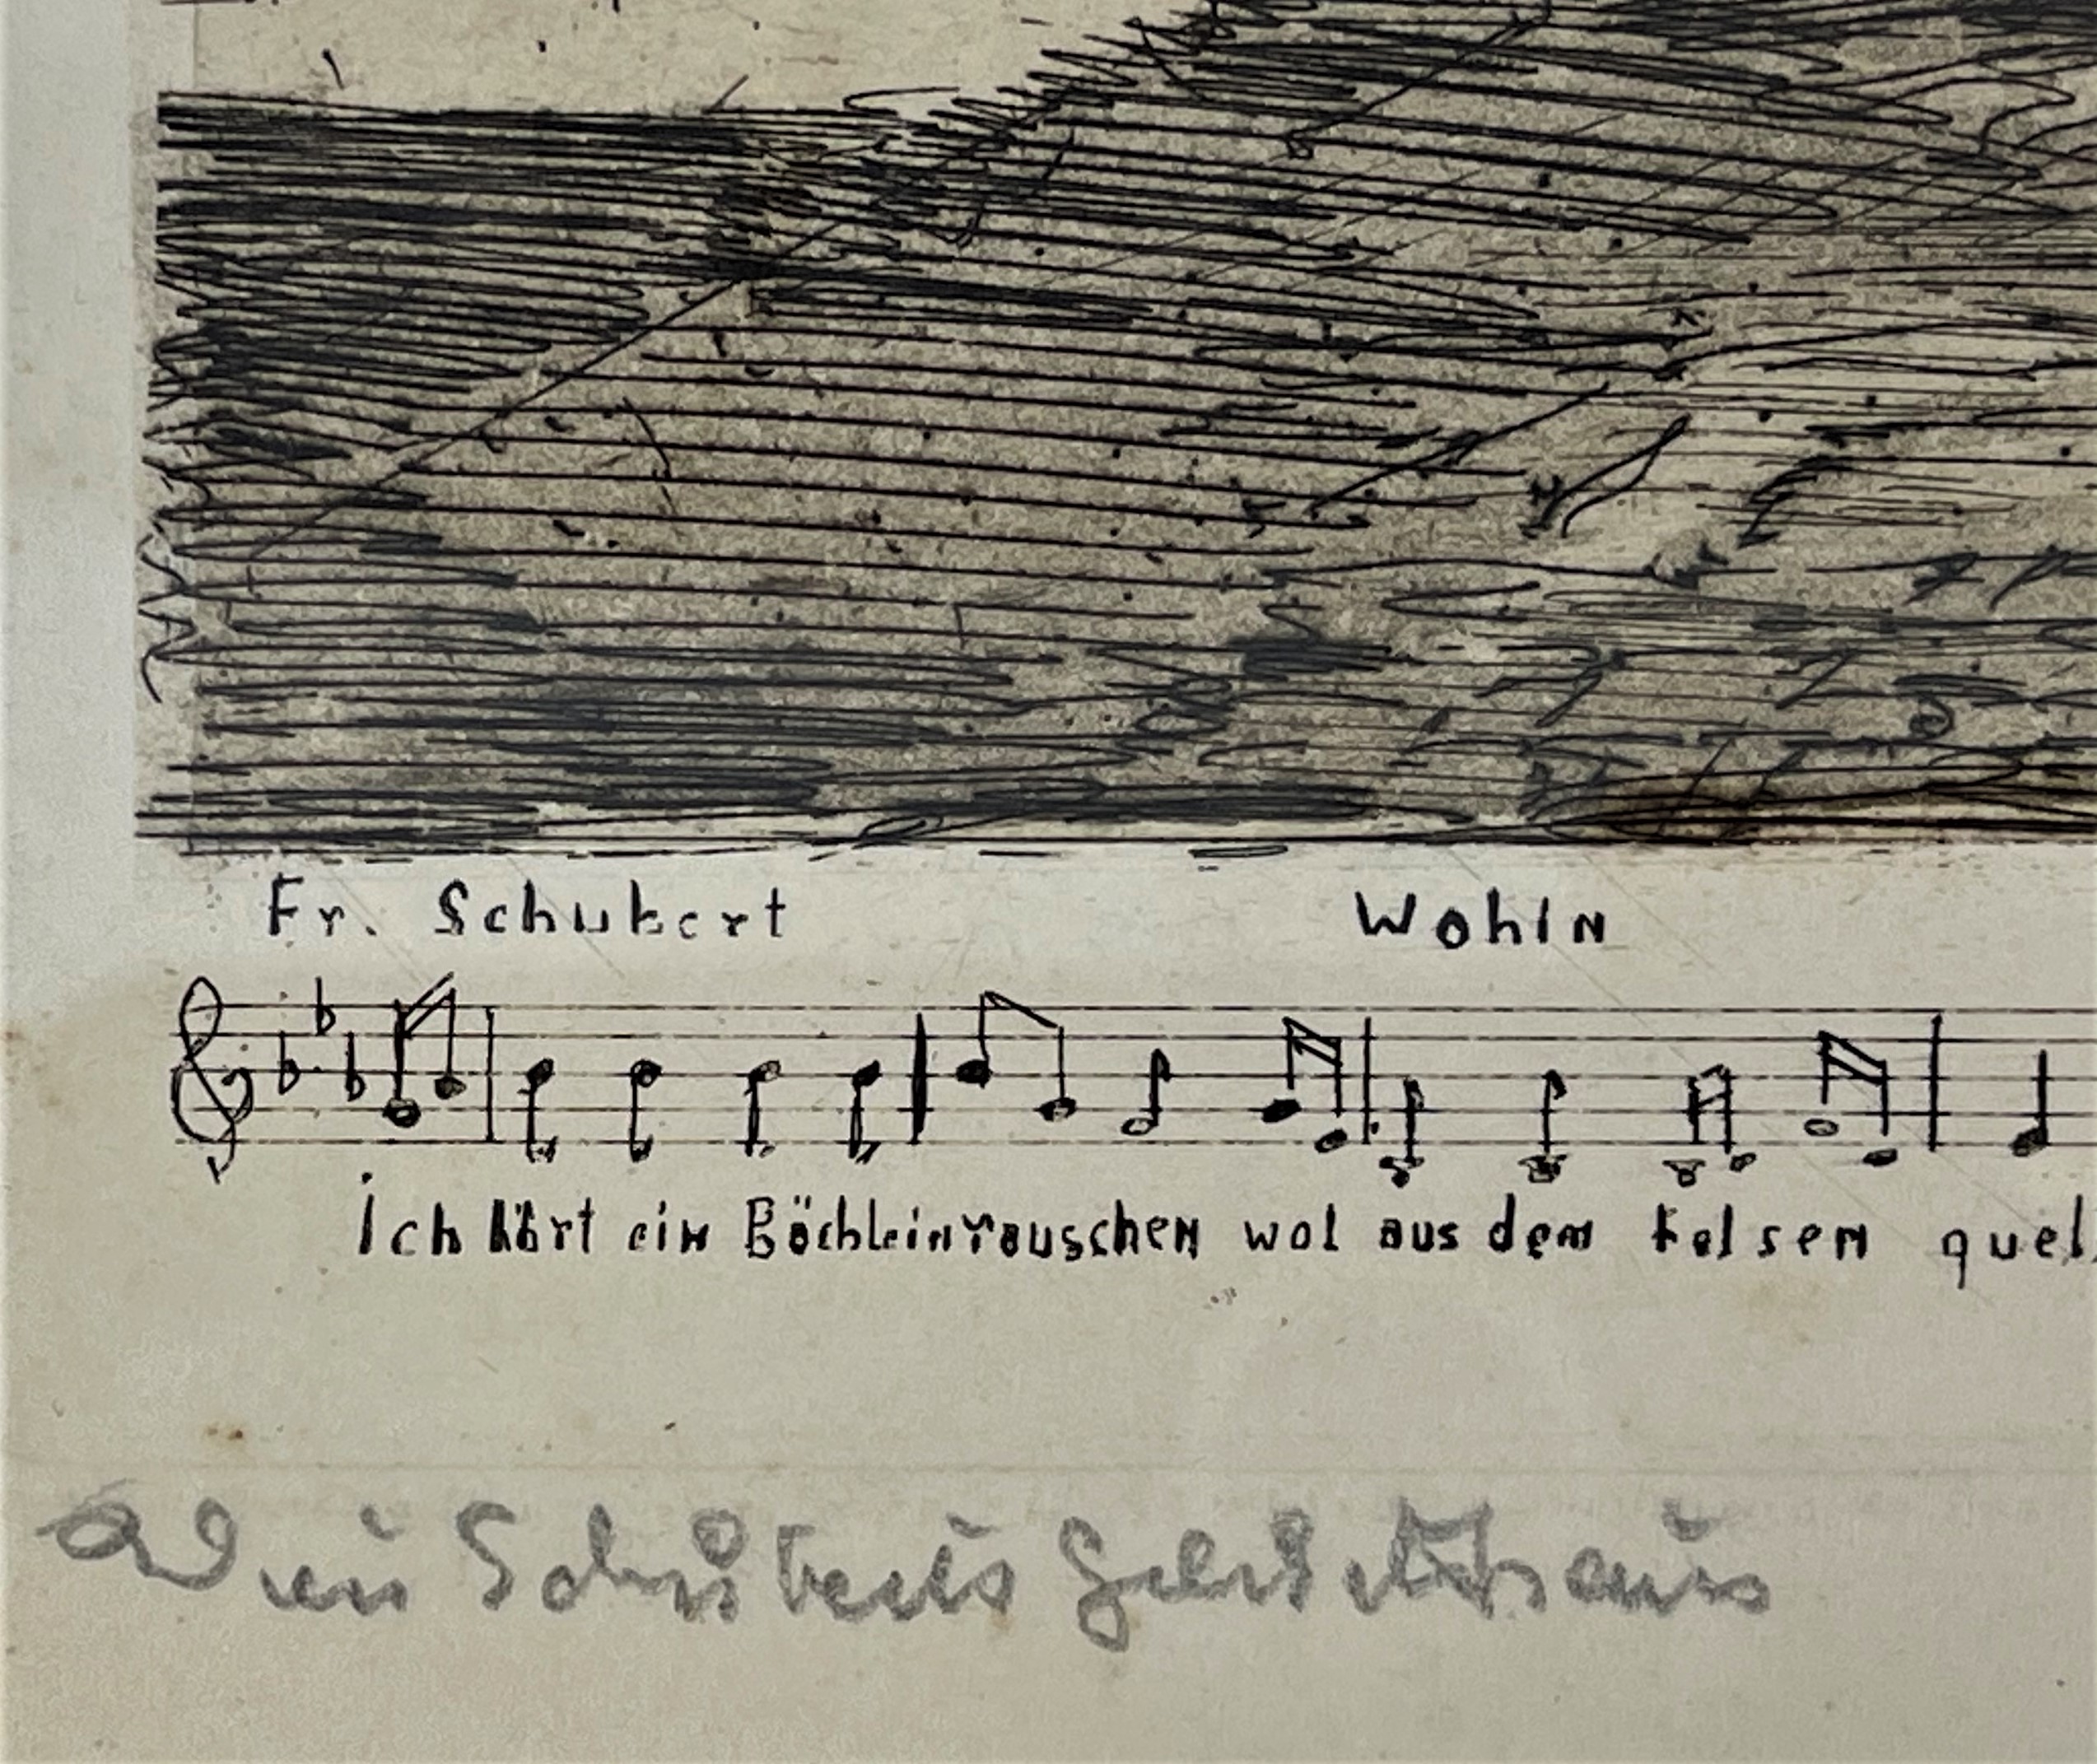 Fr. Schubert Wohin
Ich hört ein Bächlein rauschen wol aus dem Felsen quel
Wien Schuberts Geburtshaus